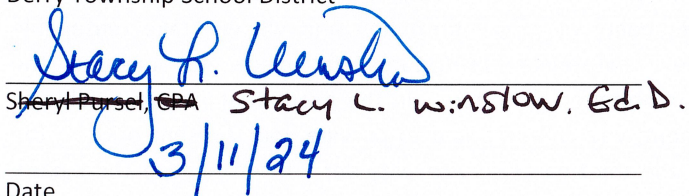 Derry Township School District
Stacy L. Winslow
Sheryl Pursel, CPA Stacy L. Winslow, Ed.D.
3/11/24
Date